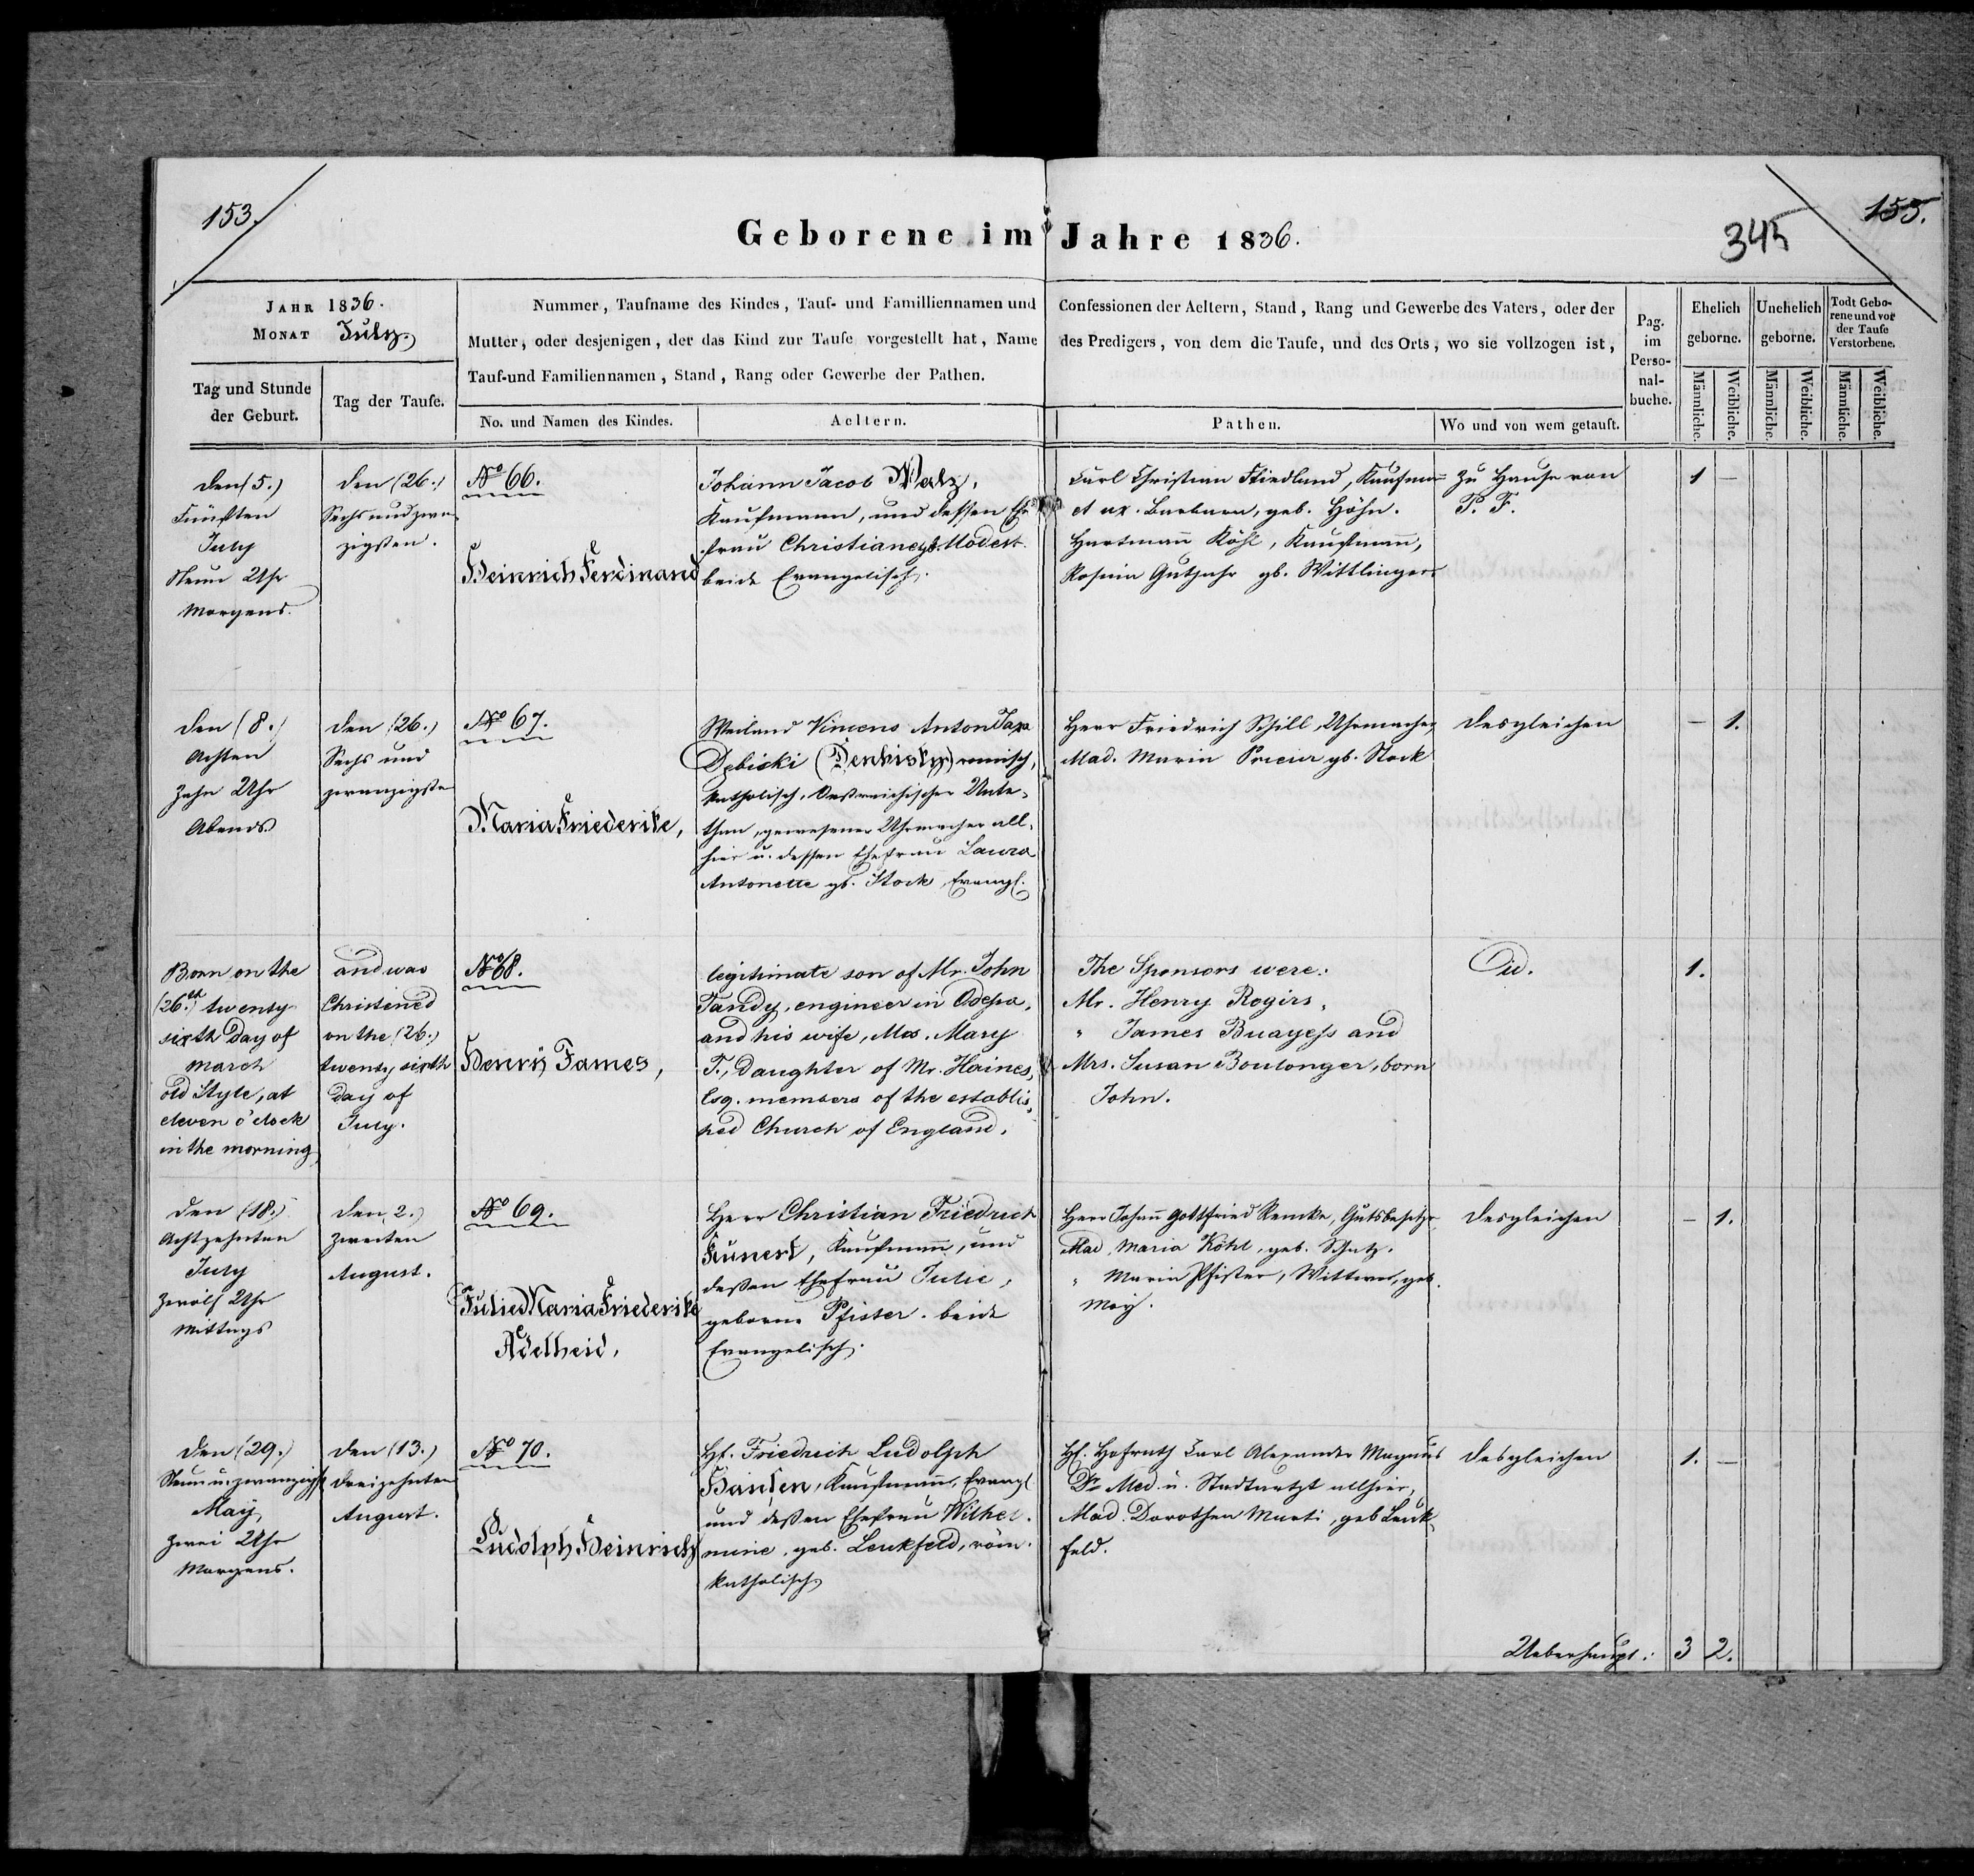 153.
155.
345
Geborene im Jahre 1836.
JAHR 1836.
MONAT July.
Tag und Stunde der Geburt.
Tag der Taufe.
Nummer, Taufname des Kindes, Tauf- und Familliennamen und
Mutter, oder desjenigen, der das Kind zur Taufe vorgestellt hat, Name
Tauf-und Familiennamen, Stand, Rang oder Gewerbe der Pathen.
No. und Namen des Kindes.
Aeltern.
Confessionen der Aeltern, Stand, Rang und Gewerbe des Vaters, oder der
des Predigers, von dem die Taufe, und des Orts, wo sie vollzogen ist,
Pathen.
Wo und von wem getauft.
Pag. im Perso-nal-buche.
Ehelich geborne.
Unehelich geborne.
Todt Gebo-rene und vor der Taufe Verstorbene.
Männliche.
Weibliche.
Männliche.
Weibliche.
Männliche.
Weibliche.
den (5.)
Fünften
July
Neun Uhr
Morgens.
den (26.)
Sechs und zwan
zigsten.
No 66.
Heinrich Ferdinand
Johann Jacob Walz,
Kaufmann, und dessen Ehe
frau Christiane gb. Modest.
beide Evangelisch.
Carl Christian Friedland, Kaufmann
et ux. Barbara, geb. Höhn.
Hartmann Köhl, Kaufmann,
Rosina Gutjahr gb. Wittlinger
Zu Hause von
P. F.
1 –
den (8.)
Achten
Zehn Uhr
Abends
den (26.)
Sechs und
zwanzigsten
No 67.
Maria Friederike,
Weiland Vincens Anton
Dębiski
katholisch, Oestreichischer Unter-
than, gewesener Uhrmacher all-
hier u. dessen Ehefrau Laura
Antonette gb. Stock, Evangl.
Herr Friedrich Schill, Uhrmacher,
Mad. Maria gb. Stock
desgleichen
– 1.
Born on the
(26.th) twenty
sixth Day of
March
old Style, at
eleven o'clock
in the morning,
and was
Christened
on the (26.)
twenty sixth
Day of
July.
No 68.
Henry James,
legitimate son of Mr. John
Tandy, engineer in Odessa,
and his wife, Mrs. Mary
T., daughter of Mr. Haines,
Esq. members of the establis,
hed Church of England.
The Sponsors were:
Mr. Henry Rogirs,
" James and
Mrs. Susan Boulonger, born
John.
1.
den (18.)
Achtzehnten
July
Zwölf Uhr
Mittags
den 2.)
Zweiten
August.
No 69.
Julie Maria Friederike
Adelheid,
Herr Christian Friedrich
Kunert, Kaufmann, und
dessen Ehefrau Julie,
geborne Pfister. beide
Evangelisch.
Herr Johann Gottfried Remke, Gutsbesitzer
Mad. Maria Köhl, geb. Schatz.
" Maria Pfister, Wittwe, geb.
May.
desgleichen
– 1.
den (29.)
Neun u. zwanzigst
May,
Zwei Uhr
Morgens.
den (13.)
dreizehnten
August.
No 70.
Ludolph Heinrich
H. Friedrich Ludolph
Hansen, Kaufmann, Evangl
und dessen Ehefrau Wilhel.
mine, geb. Leukfeld, röm.
katholisch
H. Hofrath Carl Alexander Magnus
Dr Med. u. Stadtartzt allhier,
Mad. Dorothea Murti, geb Leuk
feld.
desgleichen
1. –
Ueberhaupt: 3 2.